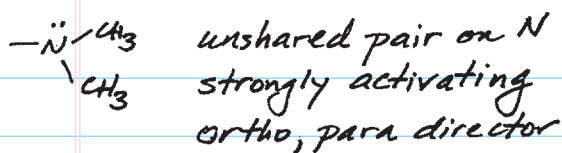 –N̈–CH3 unshared pair on N
CH3 strongly activating
ortho, para director